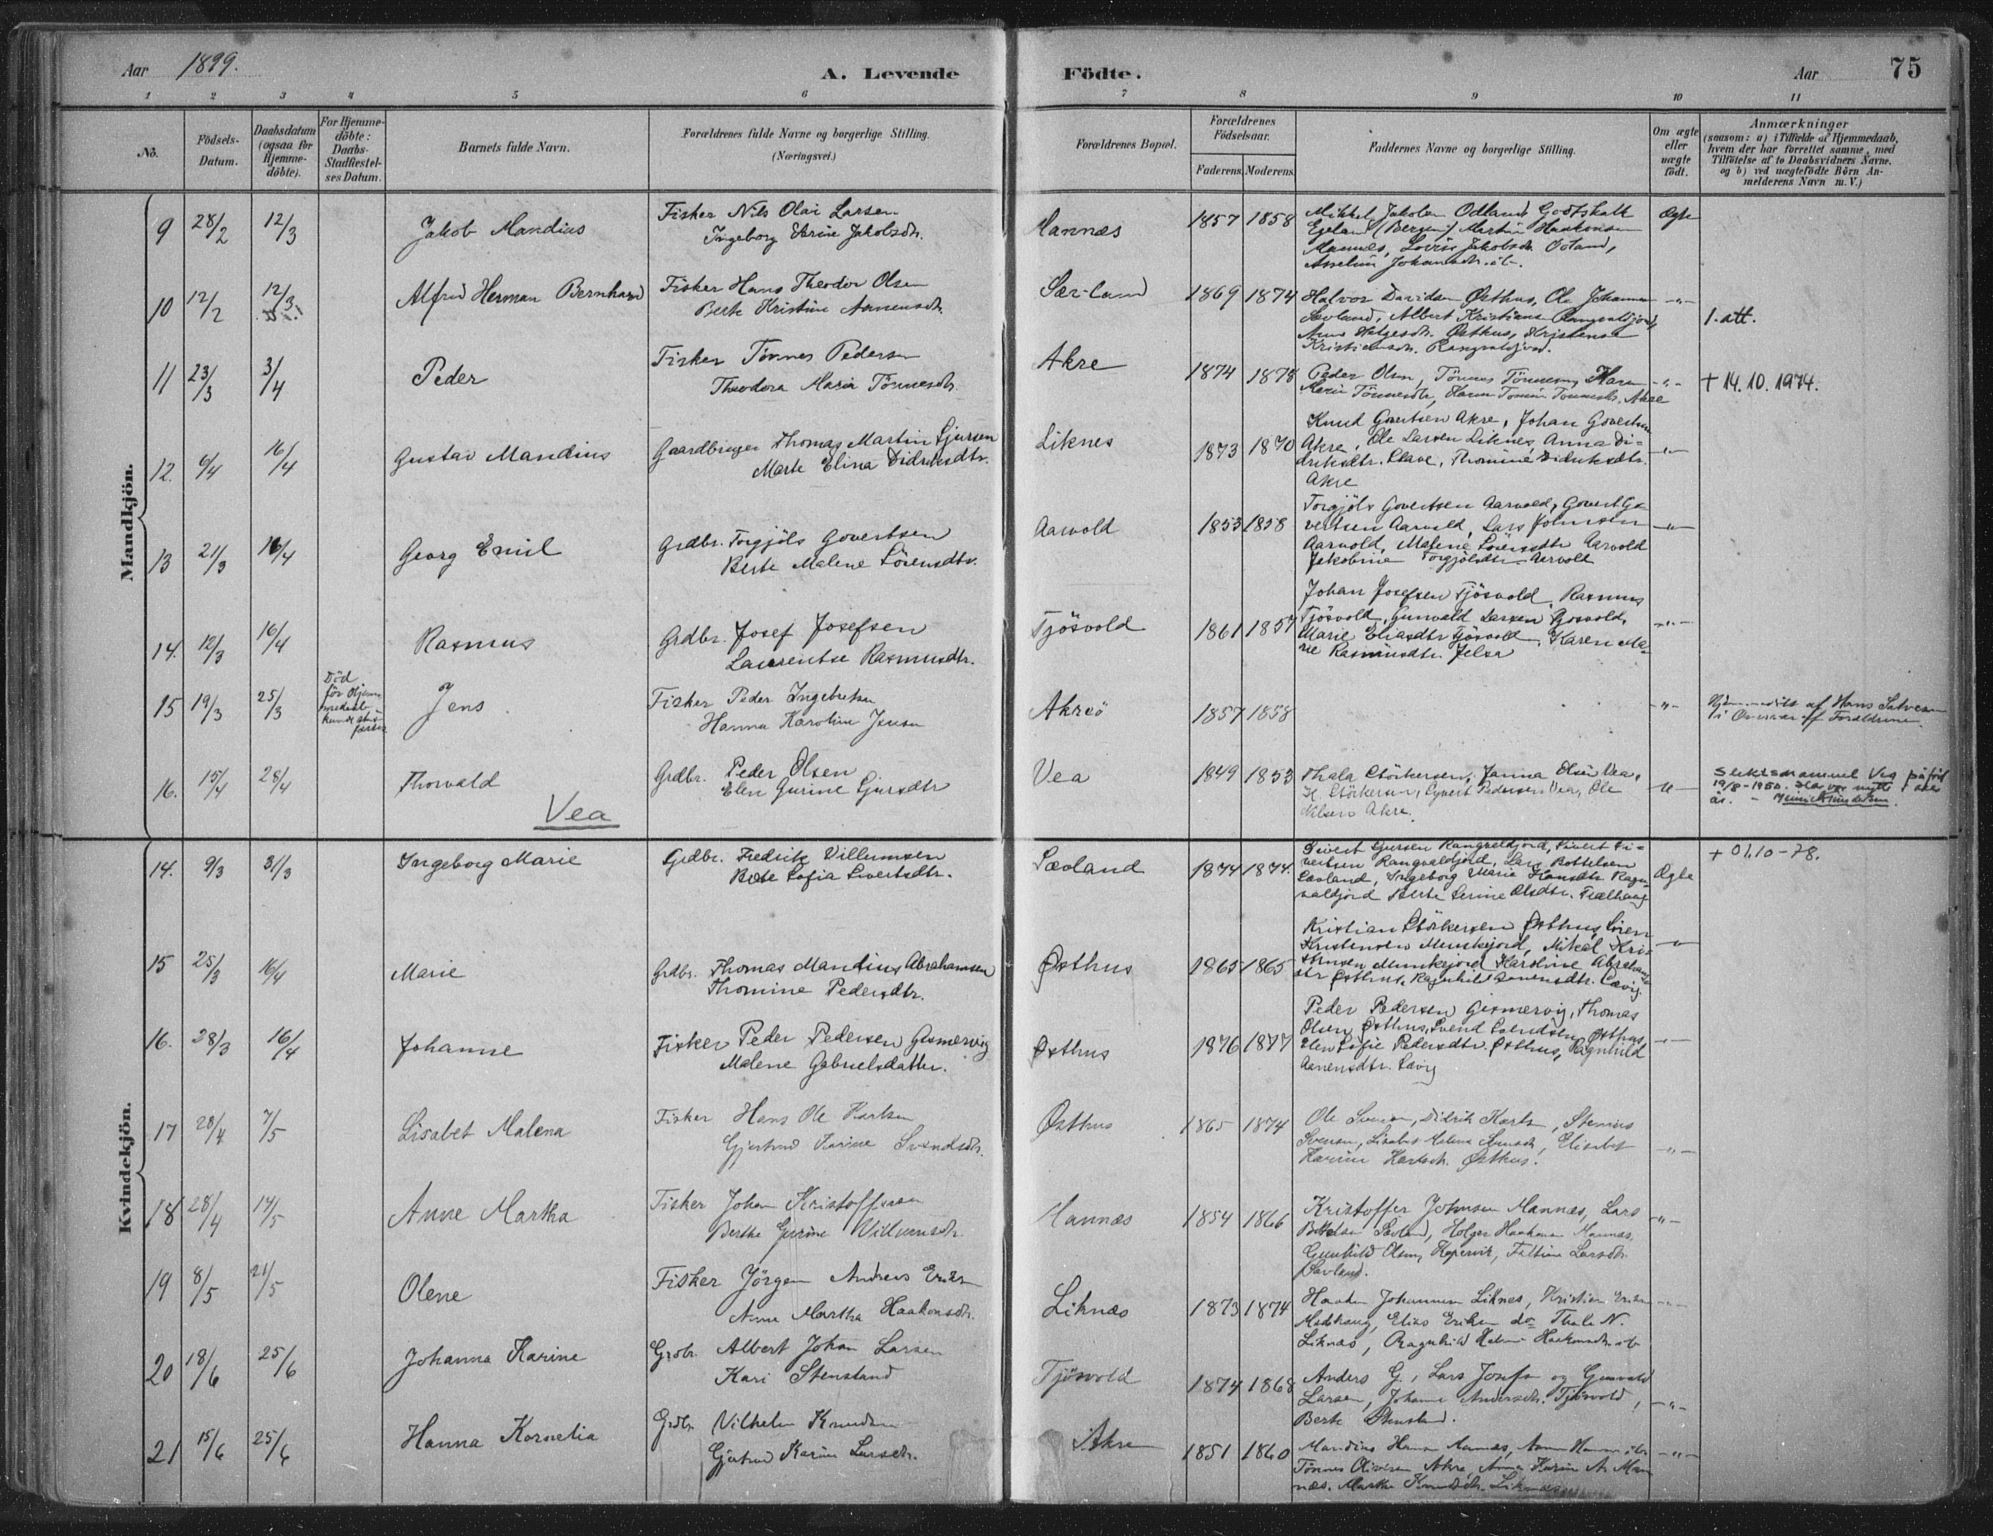 Aar 1899.
A. Levende Födte.
Aar 75
1 2 3 4 5 6 7 8 9 10 11
No.
Födsels-Datum.
Daabsdatum (ogsaa for Hjemmedöbte).
For Hjemmedöbte: Daabs-Stadfæstelses Datum.
Barnets fulde Navn.
Forældrenes fulde Navne og borgerlige Stilling. (Næringsvei.)
Forældrenes Bopæl.
Forældrenes Födselsaar.
Faderens. Moderens.
Faddernes Navne og borgerlige Stilling.
Om ægte eller uægte födt.
Anmærkninger
(saasom: a) i Tilfælde af Hjemmedaab,
hvem der har forrettet samme, med
Tilföielse af to Daabsvidners Navne.
og b) ved uægtefödte Börn Anmelderens Navn m. V.)
Mandkjön.
9 28/2 12/3 Jakob Mandius
Fisker Nils Olai Larsen
Ingeborg Serine Jakobsdtr.
Mannæs 1857 1858
Mikkel Jakobsen Odland, Godtskalk
Egeland (Bergen) Martin Haakonsen
Mannæs, Lovise Jakobsdtr. Odland,
Asseline Johannsdtr. ib.
Ægte
10 12/2 12/3 Alfred Herman Bernhard
Fisker Hans Theodor Olsen
Berte Kristine Aanensdtr.
Sævland 1869 1874
Halvor Davidsen Østhus, Ole Johannsen
Sævland, Albert Kristiansen Rangvaldjord,
Anne Helgesdtr. Østhus, Kristense
Kristiansdtr. Rangvaldjord.
-"- 1. att.
11 23/3 3/4 Peder
Fisker Tönnes Pedersen
Theodora Maria Tönnesdtr.
Akre 1874 1878
Peder Olsen, Tönnes Tönnesen, Karen
Marie Tönnesdtr, Karen Tomine Tönnesdtr. Akre
-"- + 14.10.1974.
12. 6/4 16/4 Gustav Mandius
Gaardbruger Thomas Martin Gjursen
Marte Elina Didriksdtr.
Liknes 1873 1870
Knud Govertsen Akre, Johan Govertsen
Akre, Ole Larsen Liknes, Anna Di-
driksdtr. Stave, Thomine Didriksdtr.
Akre
-"-
13 21/3 16/4 Georg Emil
Grdbr. Torgjöls Govertsen
Berte Malene Sörensdtr.
Aarvold 1853 1858
Torgjöls Govertsen Aarvold, Govert Go-
vertsen Aarvold, Lars Johnsen
Aarvold, Malene Sörensdtr Aarvold
Jakobine Torgjölsdtr. Aarvold
-"-
14. 12/3 16/4 Rasmus
Grdbr. Josef Josefsen
Laurentse Rasmusdtr.
Tjösvold 1861 1857
Johan Josefsen Tjösvold, Rasmus
Tjösvold, Gunvald Larsen Tjösvold,
Marie Eliasdtr Tjösvold, Karen Ma-
rie Rasmusdtr. Jelsa
-"-
15 19/3 25/3
Död
för Hjem-
medaab
Jens
Fisker Peder Ingebretsen
Hanna Karoline Jensen
Akreö 1857 1858
-"-
Hjemmedöbt af Hans Salvesen
i Overvær af Forældrene.
16. 15/4 28/4 Thorvald
Vea
Grdbr. Peder Olsen
Elen Gurine Gjursdtr
Vea 1849 1853
Thala Störkersen, Janna Olsen Vea,
H. Störkersen, Syvert Pedersen Vea, Ole
Nilsen Akre.
-"-
Slektsnavnet Vea påförd
19/8-1950.
Kvindekjön.
14. 9/3 31/3 Ingeborg Marie
Grdbr. Fredrik Villumsen
Berte Sofia Sivertsdtr.
Sævland 1874 1874.
Sivert Gursen Rangvaldjord, Sivert Si-
vertsen Rangvaldjord, Lars Bottelsen
Sævland, Ingeborg Marie Hansdtr Rang-
valdjord Berte Serine Olsdtr.
Ægte + 01.10-78.
15 25/3 16/4 Marie
Grdbr. Thomas Mandius Abrahamsen
Thomine Pedersdtr.
Østhus 1865 1865
Kristian Störkersen Østhus, Sören
Kristensen Munkejord, Mikal Kris-
tensen Munkejord Karoline Abrahams-
dtr Østhus, Ragnhild Aanensdtr. Sævig.
-"-
16. 28/3 16/4 Johanne
Fisker Peder Pedersen Gismervig
Malene Gabrielsdatter.
Østhus 1876 1877
Peder Pedersen Gismervig, Thomas
Olsen Østhus, Svend Svendsen Østhus,
Elen Sofie Pedersdtr. Østhus, Ragnhild
Aanensdtr. Sævig
-"-
17 20/4 7/5 Lisabet Malena
Fisker Hans Ole Karlsen
Gjertrud Karine Svendsdtr.
Østhus 1865 1874
Ole Svensen, Didrik Karls, Stenius
Svensen, Lisabet Malena Svensdtr, Elisabet
Karine Karlsdtr. Østhus.
-"-
18 28/4 14/5 Anne Martha
Fisker Johan Kristoffersen
Berthe Gurine Villumsdtr.
Mannæs 1854 1866
Kristoffer Johnsen Mannæs, Lars
Bottelsen Sævland, Holger Haakonsen Mannæs,
Gunhild Olsen, Kopervik, Larsdtr.
Sævland.
-"-
19 8/5 21/5 Olene
Fisker Jörgen Andreas Eriks.
Anne Martha Haakonsdtr.
Liknæs 1873 1874
Haakon Johannsen Liknæs, Kristian Eriksen
Medhaug, Elias Eriksen do Thale N.
Liknæs, Ragnhild Helene Haakonsdtr. ib
-"-
20 18/6 25/6 Johanna Karine
Grdbr. Albert Johan Larsen
Kari Stensland
Tjösvold 1874 1868
Anders G., Lars Josefs. og Gunvald
Larsen, Johanne Andersdtr. Tjösvold,
Berte Stensland.
-"-
21 15/6 25/6 Hanna Kornelia
Grdbr Vilhelm Knudsen
Gjertrud Karine Larsdtr.
Akre 1851 1860
Mandius Hansen Mannæs, Anne Hansen ib.
Tönnes Olivsen Akre, Anna Karine A. Man-
næs. Martha Knudsdtr. Liknæs
-"-